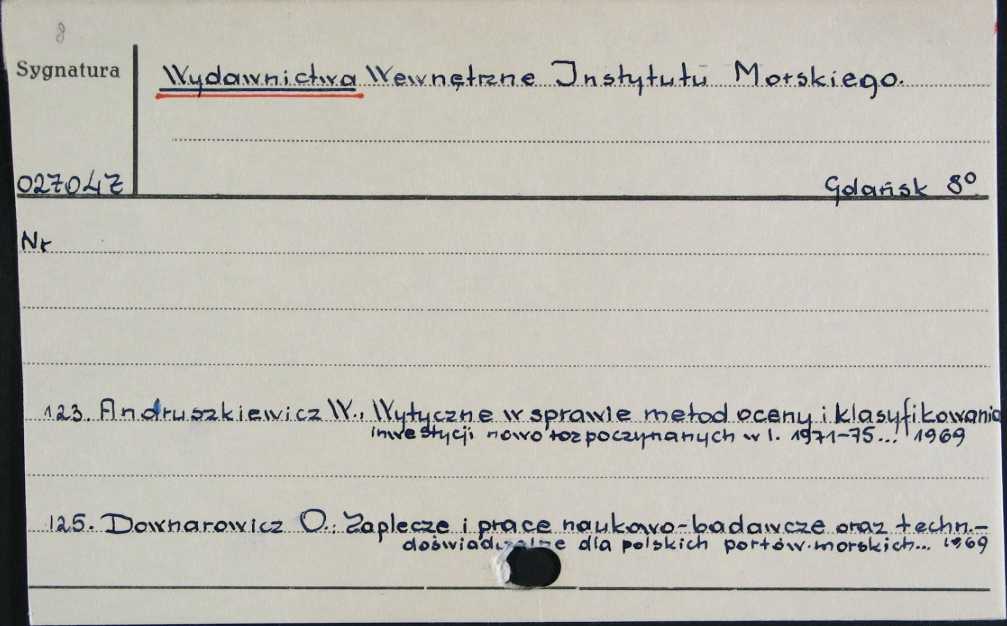 8
Sygnatura
Wydawnictwa Wewnętrzne Instytutu Morskiego.
027047
Gdańsk 8°
Nr
123. Andruszkiewicz W., Wytyczne w sprawie metod oceny i klasyfikowania
inwestycji nowo rozpoczynanych w l. 1971-75... 1969
125. Downarowicz O.: Zaplecze i prace naukowo-badawcze oraz techn.-
doświadczalne dla polskich portów morskich... 1969